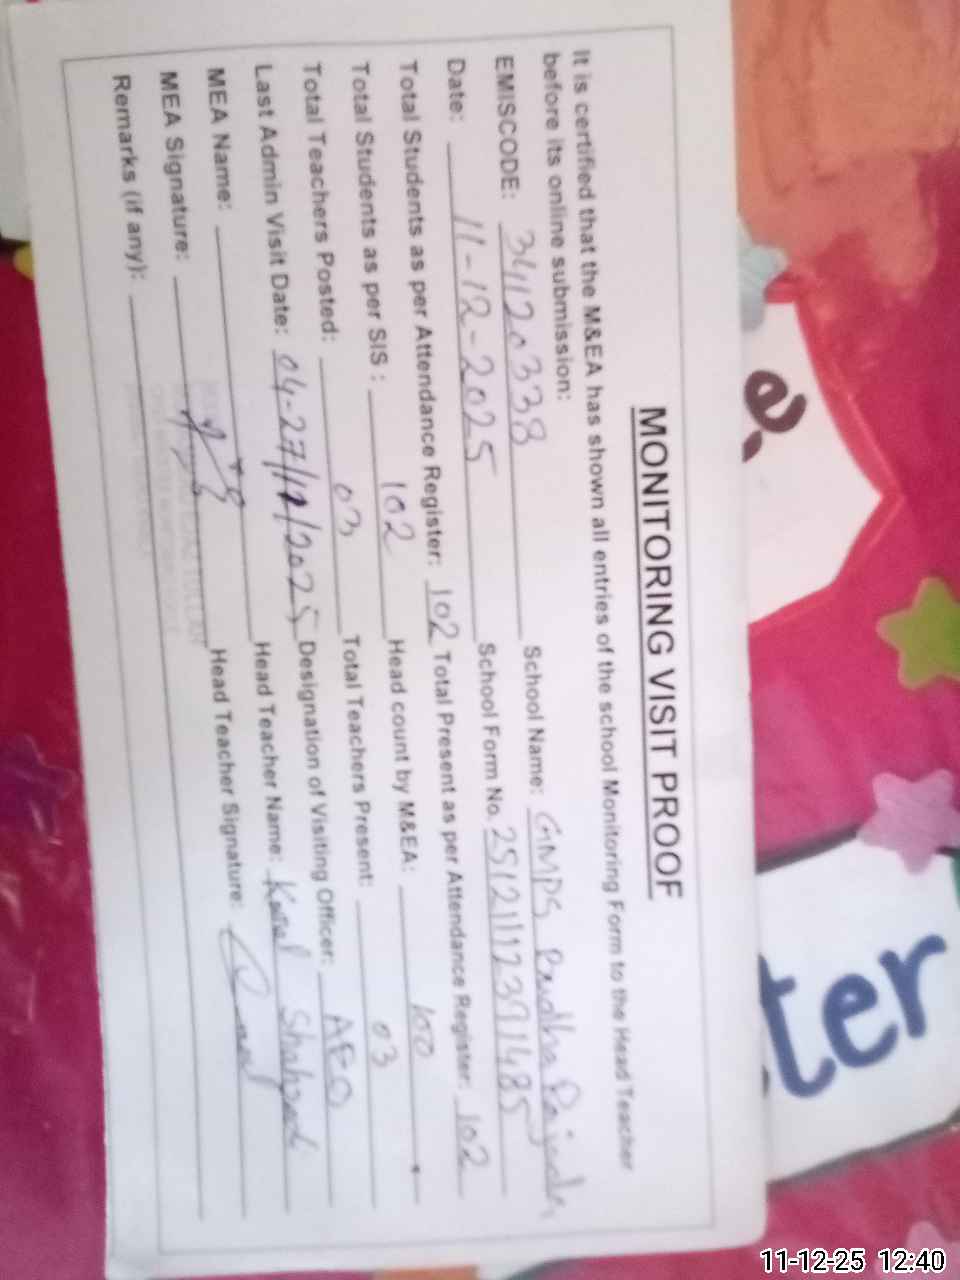 MONITORING VISIT PROOF
It is certified that the M&EA has shown all entries of the school Monitoring Form to the Head Teacher
before its online submission:
EMISCODE: 34120338 School Name: GMPS
Date: 11-12-2025 School Form No. 25121112391485
Total Students as per Attendance Register: 102 Total Present as per Attendance Register: 102
Total Students as per SIS : 102 Head count by M&EA: 100
Total Teachers Posted: 03 Total Teachers Present: 03
Last Admin Visit Date: 04-27/12/2025 Designation of Visiting Officer: AEO
MEA Name: Head Teacher Name: Shahzad
MEA Signature: Head Teacher Signature:
Remarks (if any):
ter
11-12-25 12:40